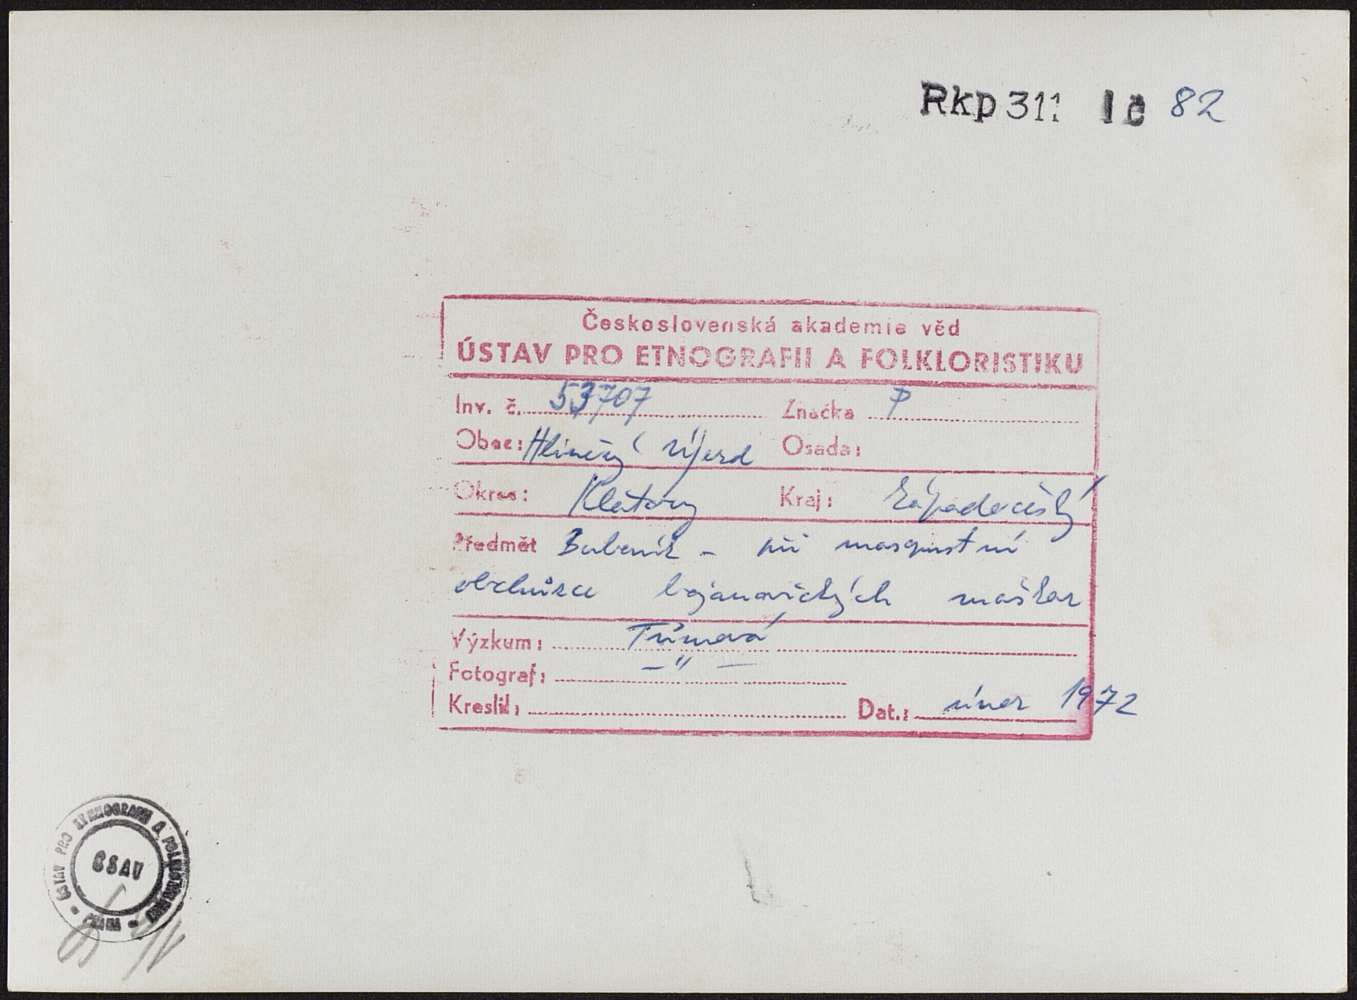 Rkp 311 IČ 82
Československá akademie věd
ÚSTAV PRO ETNOGRAFII A FOLKLORISTIKU
Inv. č. 53707 Značka P
Obec: Hliněný Újezd Osada:
Okres: Klatovy Kraj: Západočeský
Předmět Bubeník - při masopustní
obchůzce bojanovických maškar
Výzkum: Tůmová
Fotograf: -"-
Kreslil: Dat.: únor 1972
ÚSTAV PRO ETNOGRAFII A FOLKLORISTIKU - PRAHA -
ČSAV